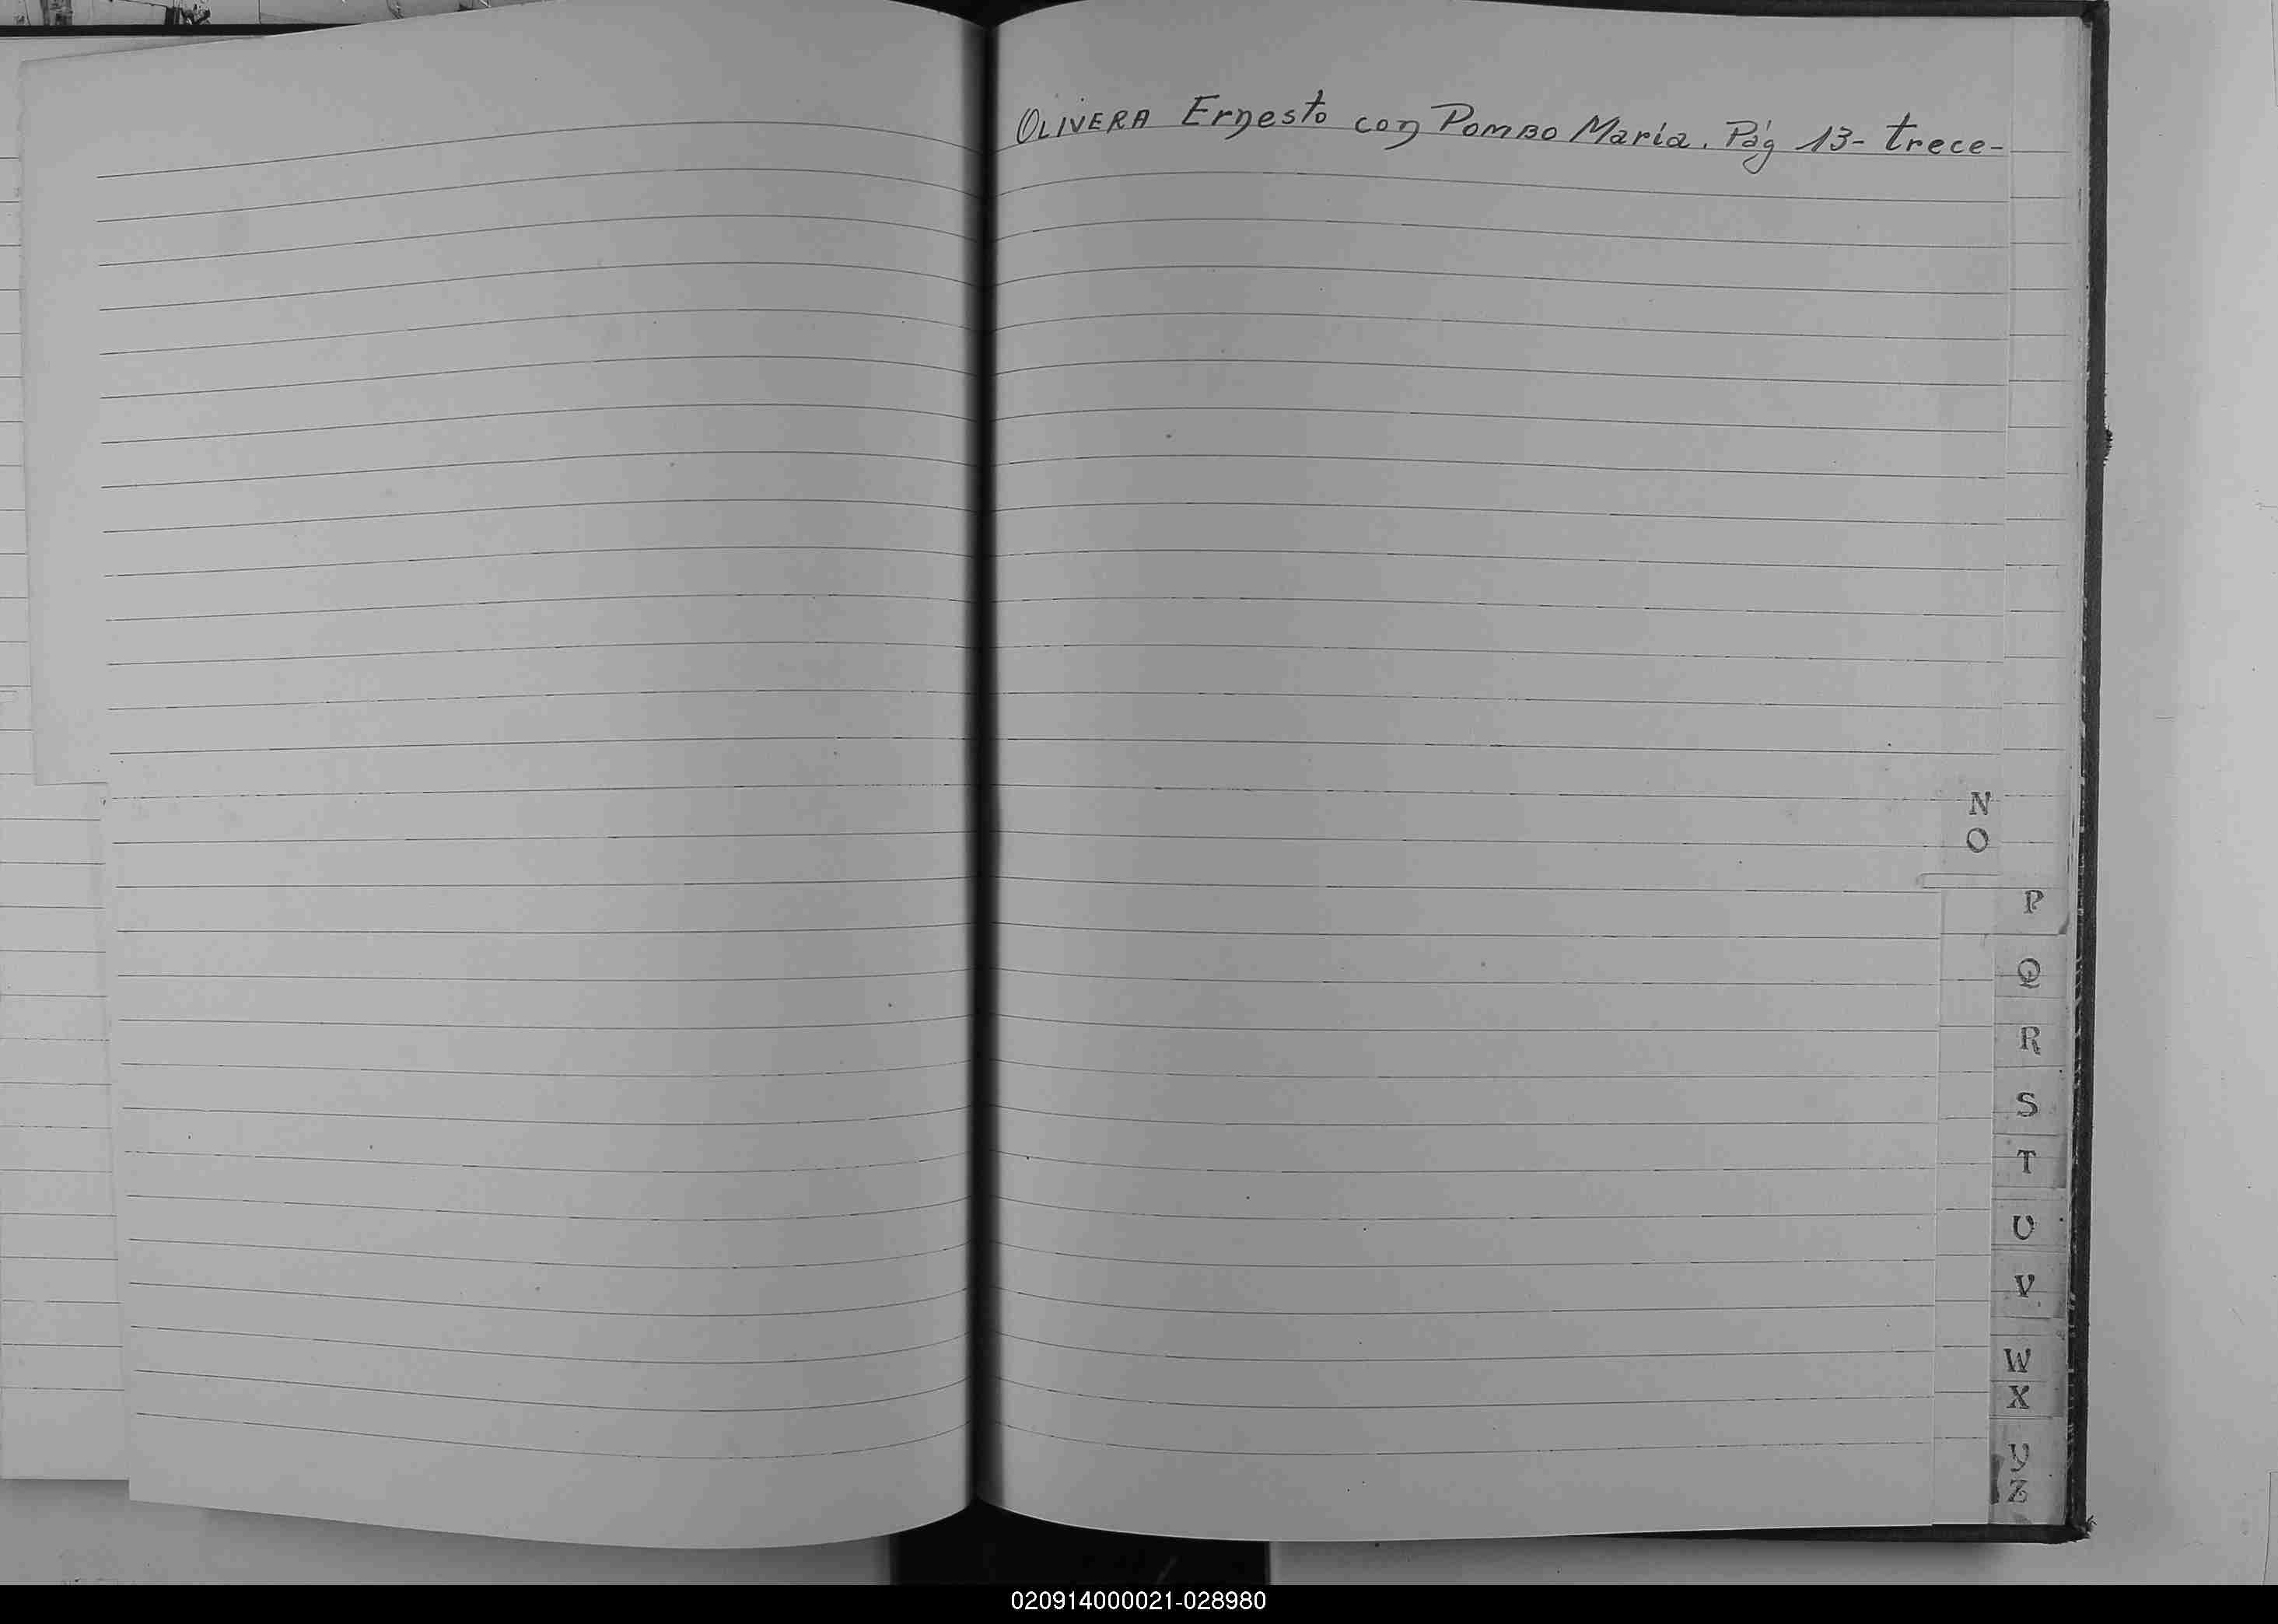 OLIVERA Ernesto con POMBO María. Pág 13- trece-
N
O
P
Q
R
S
T
U
V
W
X
Y
Z
020914000021-028980